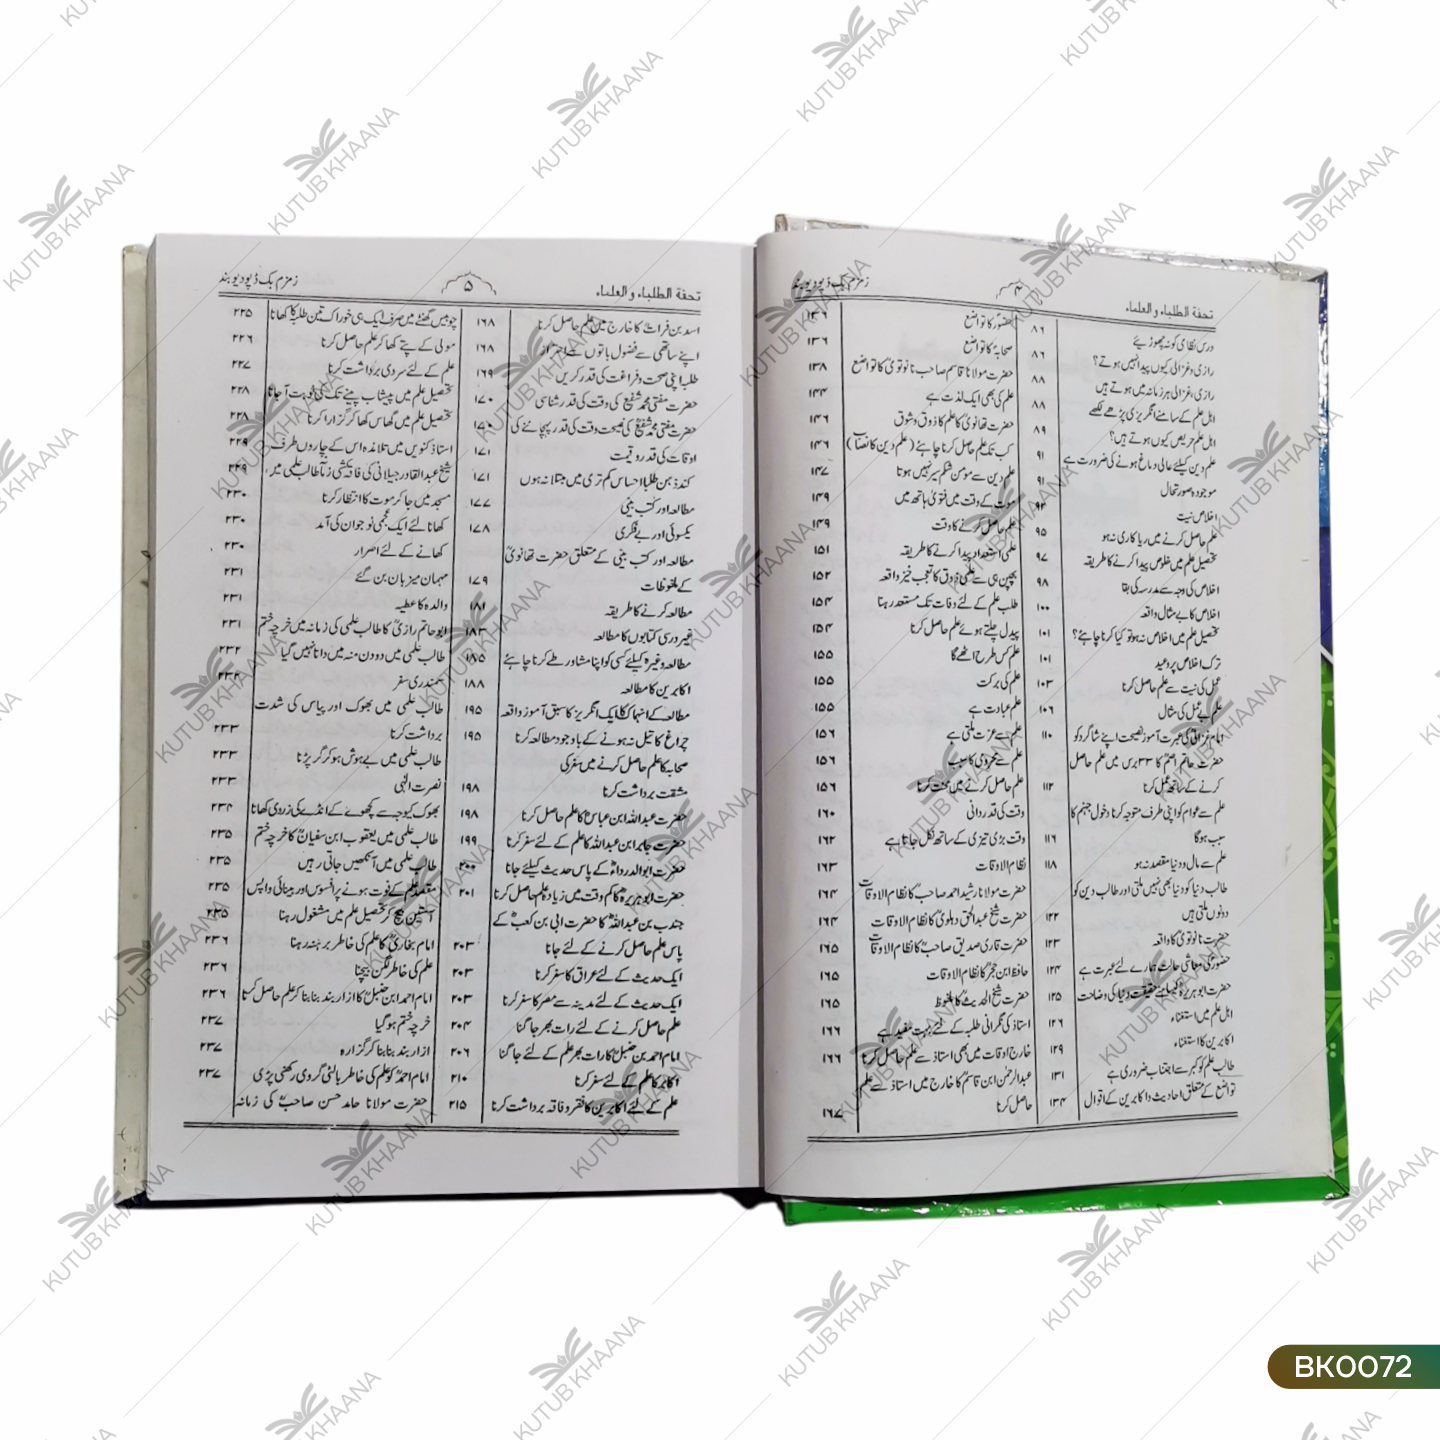 تحفة الطلباء والعلماء
۴
زمزم بک ڈپو دیوبند
درس نظامی کو نہ چھوڑیئے ۸۶
رازی و غزالی کیوں پیدا نہیں ہوتے؟ ۸۶
رازی، غزالی ہر زمانہ میں ہوتے ہیں ۸۸
اہل علم کے سامنے انگریزی پڑھے لکھے ۸۸
اہل علم حریص کیوں ہوتے ہیں؟ ۸۹
علم دین کیلئے عالی دماغ ہونے کی ضرورت ہے ۹۱
موجودہ صورتحال ۹۱
اخلاص نیت ۹۴
علم حاصل کرنے میں ریا کاری نہ ہو ۹۵
تحصیل علم میں خلوص پیدا کرنے کا طریقہ ۹۷
اخلاص کی وجہ سے مدرسہ کی بقا ۹۸
اخلاص کا بے مثال واقعہ ۱۰۰
تحصیل علم میں اخلاص نہ ہو تو کیا کرنا چاہئے؟ ۱۰۱
ترک اخلاص پر وعید ۱۰۱
عمل کی نیت سے علم حاصل کرنا ۱۰۳
علم بے عمل کی مثال ۱۰۶
امام غزالیؒ کی عبرت آموز نصیحت اپنے شاگرد کو ۱۱۰
حضرت حاتم اصمؒ کا ۳۳ برس میں علم حاصل
کرنے کے ساتھ عمل کرنا ۱۱۲
علم سے عوام کو اپنی طرف متوجہ کرنا دخول جہنم کا
سبب ہوگا ۱۱۶
علم سے مال و دنیا مقصد نہ ہو ۱۱۸
طالب دنیا کو دنیا بھی نہیں ملتی اور طالب دین کو
دونوں ملتی ہیں ۱۲۲
حضرت نانوتویؒ کا واقعہ ۱۲۳
حضورؐ کی معاشی حالت ہمارے لئے عبرت ہے ۱۲۴
حضرت ابوہریرہؓ کیسا منے حقیقت دنیا کی وضاحت ۱۲۵
اہل علم میں استغناء ۱۲۶
اکابرین کا استغناء ۱۲۹
طالب علم کو کبر سے اجتناب ضروری ہے ۱۳۱
تواضع کے متعلق احادیث و اکابرین کے اقوال ۱۳۴
حضورؐ کا تواضع ۱۳۶
صحابہؓ کا تواضع ۱۳۶
حضرت مولانا قاسم صاحب نانوتویؒ کا تواضع ۱۳۸
علم کی بھی ایک لذت ہے ۱۴۴
حضرت تھانویؒ کا علم کا ذوق وشوق ۱۴۶
کب تک علم حاصل کرنا چاہئے (علم دین کا نصاب) ۱۴۶
علم دین سے مومن شکم سیر نہیں ہوتا ۱۴۷
موت کے وقت میں فتویٰ ہاتھ میں ۱۴۹
علم حاصل کرنے کا وقت ۱۴۹
علمی استعداد پیدا کرنے کا طریقہ ۱۵۱
بچپن ہی سے علمی ذوق کا تعجب خیز واقعہ ۱۵۲
طلب علم کے لئے وفات تک مستعد رہنا ۱۵۴
پیدل چلتے ہوئے علم حاصل کرنا ۱۵۴
علم کس طرح اٹھے گا ۱۵۵
علم کی برکت ۱۵۵
علم عبادت ہے ۱۵۵
علم سے عزت ملتی ہے ۱۵۶
علم سے محرومی کا سبب ۱۵۶
علم حاصل کرنے میں محنت کرنا ۱۵۶
وقت کی قدر دانی ۱۶۰
وقت بڑی تیزی کے ساتھ نکل جاتا ہے ۱۶۲
نظام الاوقات ۱۶۳
حضرت مولانا رشید احمد صاحبؒ کا نظام الاوقات ۱۶۴
حضرت شیخ عبدالحق دہلویؒ کا نظام الاوقات ۱۶۴
حضرت قاری صدیق صاحبؒ کا نظام الاوقات ۱۶۵
حافظ ابن حجرؒ کا نظام الاوقات ۱۶۵
حضرت شیخ الحدیثؒ کا ملفوظ ۱۶۵
استاذ کی نگرانی طلبہ کے لئے بہت مفید ہے ۱۶۶
خارج اوقات میں بھی استاذ سے علم حاصل کرنا ۱۶۶
عبدالرحمٰن ابن قاسمؒ کا خارج میں استاذ سے علم
حاصل کرنا ۱۶۷
تحفة الطلباء والعلماء
۵
زمزم بک ڈپو دیوبند
اسد بن فراتؒ کا خارج میں علم حاصل کرنا ۱۶۸
اپنے ساتھی سے فضول باتوں سے احتراز ۱۶۸
طلبہ اپنی صحت و فراغت کی قدر کریں ۱۶۹
حضرت مفتی محمد شفیعؒ کی وقت کی قدر شناسی ۱۷۰
حضرت مفتی محمد شفیعؒ کی نصیحت وقت کی قدر پہچاننے کی ۱۷۰
اوقات کی قدر و قیمت ۱۷۱
کند ذہن طلبا احساس کم تری میں مبتلا نہ ہوں ۱۷۱
مطالعہ اور کتب بینی ۱۷۷
یکسوئی اور بے فکری ۱۷۸
مطالعہ اور کتب بینی کے متعلق حضرت تھانویؒ
کے ملفوظات ۱۷۹
مطالعہ کرنے کا طریقہ ۱۸۱
غیر درسی کتابوں کا مطالعہ ۱۸۳
مطالعہ وغیرہ کیلئے کسی کو اپنا مشاور طے کرنا چاہئے ۱۸۵
اکابرین کا مطالعہ ۱۸۸
مطالعہ کے انہماک کا ایک انگریز کا سبق آموز واقعہ ۱۹۵
چراغ کا تیل نہ ہونے کے باوجود مطالعہ کرنا ۱۹۵
صحابہ کا علم حاصل کرنے میں سفر کی
مشقت برداشت کرنا ۱۹۸
حضرت عبداللہ ابن عباسؓ کا علم حاصل کرنا ۱۹۸
حضرت جابر ابن عبداللہ کا علم کے لئے سفر کرنا ۱۹۹
حضرت ابوالدرداءؓ کے پاس حدیث کیلئے جانا ۲۰۰
حضرت ابوہریرہؓ کا کم وقت میں زیادہ علم حاصل کرنا ۲۰۱
جندب بن عبداللہؓ کا حضرت ابی بن کعبؓ کے
پاس علم حاصل کرنے کے لئے جانا ۲۰۳
ایک حدیث کے لئے عراق کا سفر کرنا ۲۰۳
ایک حدیث کے لئے مدینہ سے مصر کا سفر کرنا ۲۰۳
علم حاصل کرنے کے لئے رات بھر جاگنا ۲۰۴
امام احمد بن حنبلؒ کا رات بھر علم کے لئے جاگنا ۲۰۶
اکابر کا علم کے لئے سفر کرنا ۲۱۰
علم کے لئے اکابرین کا فقر و فاقہ برداشت کرنا ۲۱۵
چوبیس گھنٹے میں صرف ایک ہی خوراک تین طلبہ کا کھانا ۲۲۵
مولی کے پتے کھا کر علم حاصل کرنا ۲۲۶
علم کے لئے سردی برداشت کرنا ۲۲۷
تحصیل علم میں پیشاب پینے تک کی نوبت آجانا ۲۲۸
تحصیل علم میں گھاس کھا کر گزارا کرنا ۲۲۸
استاذ کنویں میں تلامذہ اس کے چاروں طرف ۲۲۹
شیخ عبدالقادر جیلانی کی فاقہ کشی زمانہ طالب علمی میں، ۲۲۹
مسجد میں جا کر موت کا انتظار کرنا ۲۳۰
کھانا لئے ایک عجمی نوجوان کی آمد ۲۳۰
کھانے کے لئے اصرار ۲۳۰
مہمان میزبان بن گئے ۲۳۱
والدہ کا عطیہ ۲۳۱
ابو حاتم رازیؒ کا طالب علمی کی زمانہ میں خرچہ ختم ۲۳۱
طالب علمی میں دو دن منہ میں دانا نہیں گیا ۲۳۲
سمندری سفر ۲۳۲
طالب علمی میں بھوک اور پیاس کی شدت
برداشت کرنا ۲۳۳
طالب علمی میں بے ہوش ہو کر گر پڑنا ۲۳۳
نصرت الٰہی ۲۳۳
بھوک کیوجہ سے کچھوے کے انڈے کی زردی کھانا ۲۳۴
طالب علمی میں یعقوب ابن سفیانؒ کا خرچہ ختم ۲۳۵
طالب علمی میں آنکھیں جاتی رہیں ۲۳۵
مقصد علم کے فوت ہونے پر افسوس اور بینائی واپس ۲۳۵
آستین بیچ کر تحصیل علم میں مشغول رہنا ۲۳۵
امام بخاریؒ کا علم کی خاطر برہنہ رہنا ۲۳۶
علم کی خاطر کفن بیچنا ۲۳۶
امام احمد ابن حنبلؒ کا ازار بند بنا بنا کر علم حاصل کرنا ۲۳۶
خرچہ ختم ہو گیا ۲۳۷
ازار بند بنا بنا کر گزارہ ۲۳۷
امام احمدؒ کو علم کی خاطر بالٹی گروی رکھنی پڑی ۲۳۷
حضرت مولانا حامد حسن صاحبؒ کی زمانہ
KUTUB KHAANA
BK0072